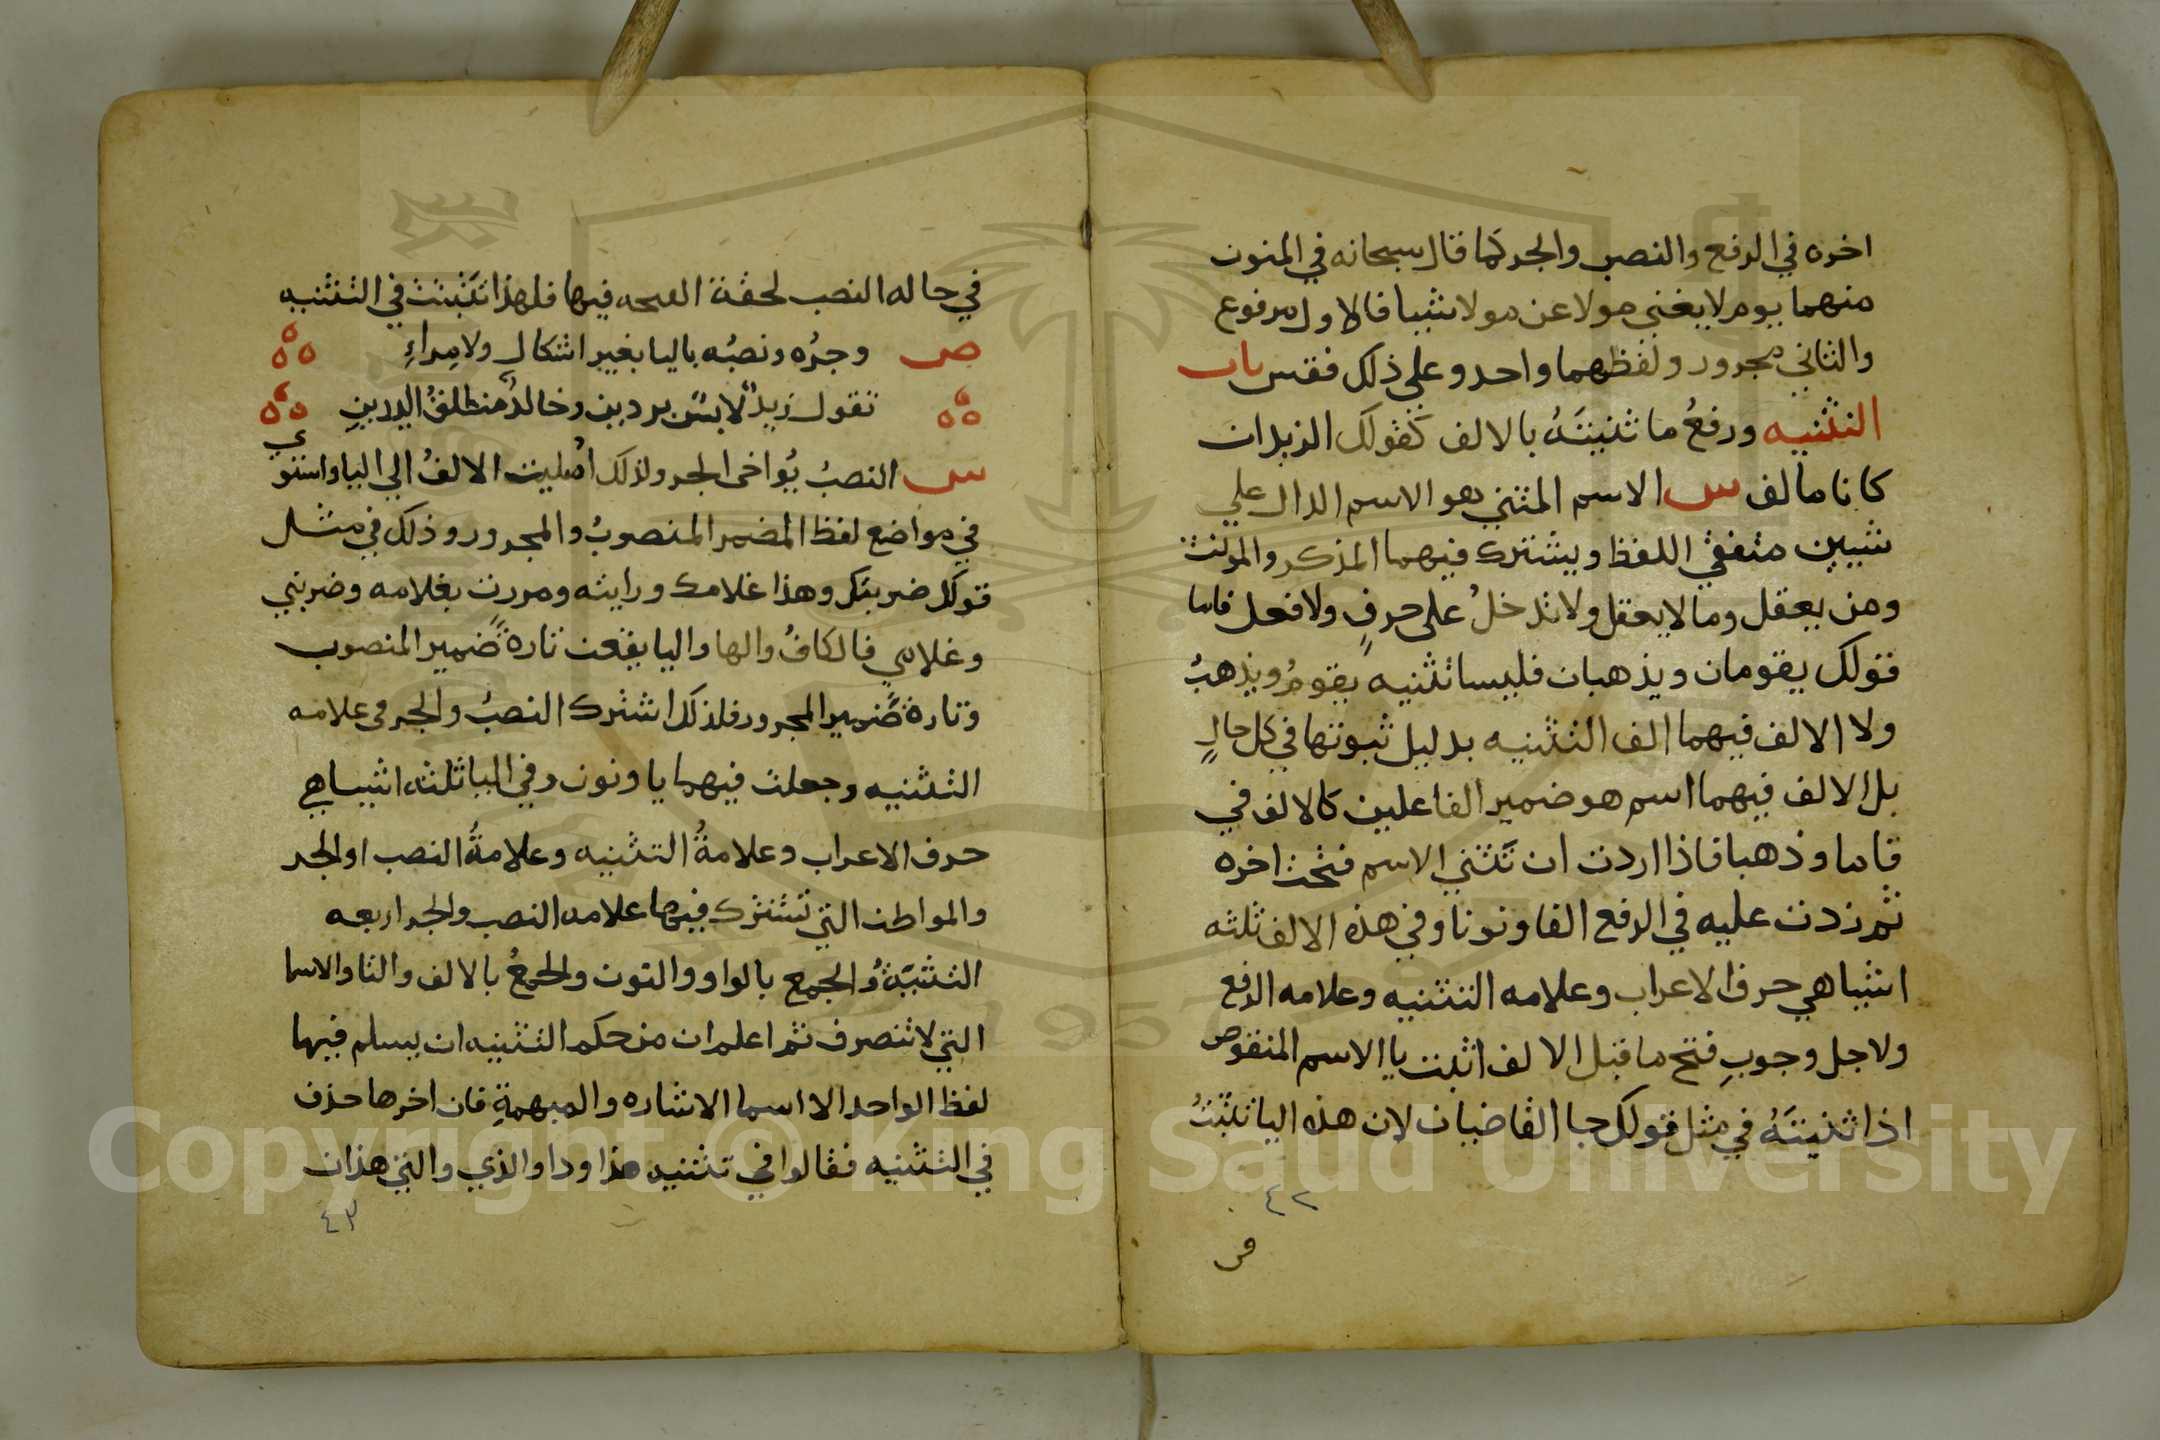 اخره في الرفع والنصب والجر كما قال سبحانه في المنون
منهما يوم لا يغني مولا عن مولا شييا فالاول مرفوع
والثاني مجرور ولفظهما واحد وعلى ذلك فقس باب
التثنيه ورفعُ ما ثنيتَهُ بالالف كقولك الزيدان
كانا مالف س الاسم المثني هو الاسم الدال علي
شييين متفقي اللفظ ويشترك فيهما المذكر والمونث
ومن يعقل وما لا يعقل ولا تدخلُ على حرفٍ ولا فعل فاما
قولك يقومان ويذهبان فليسا تثنيه يقومُ ويذهبُ
ولا الالف فيهما الف التثنيه بدليل ثبوتها في كل حالٍ
بل الالف فيهما اسم هو ضمير الفاعلين كالالف في
قاما وذهبا فاذا اردت ان تَثني الاسم فتحت اخره
ثم زدت عليه في الرفع الفا ونونا وفي هذه الالف ثلثه
اشيا هي حرف الاعراب وعلامه التثنيه وعلامه الرفع
ولاجل وجوبِ فتح ما قبل الالف اثبت يا الاسم المنقوص
اذا ثنيتَهُ في مثل قولك جا القاضيان لان هذه اليا تثبتُ
٤٢
في حاله النصب لخفة الفتحه فيها فلهذا تَثبتت في التثنيه
ص وجرُه ونصبُه باليا بغير اشكال ولا مِراءِ
تقول زيدٌ لابسٌ بردين وخالدٌ منطلقُ اليدينِ
س النصبُ يُواخى الجر ولذلك اُمليت الالفُ الي اليا واستوي
في مواضع لفظ المضمر المنصوبُ والمجرور وذلك في مثل
قولك ضربتك وهذا غلامك ورايته ومررت بغلامه وضربني
وغلامي فالكافُ والها واليا يقعن تارةً ضمير المنصوب
وتارةً ضمير المجرور فلذلك اشترك النصبُ والجر في علامه
التثنيه وجعلت فيهما يا ونون وفي اليا ثلثه اشيا هي
حرف الاعراب وعلامةُ التثنيه وعلامةُ النصب او الجر
والمواطن التي تشترك فيها علامه النصب والجر اربعه
التثنيَةُ والجمع بالواو والنون والجمعُ بالالف والتا والاسما
التي لا تنصرف ثم اعلم ان من حكم التثنيه ان يسلم فيها
لفظ الواحد الا اسما الاشاره والمبهمةِ فان اخرها حذف
في التثنيه فقالوا في تثنيه هذا وذا والذي والتي هذان
٤٣
Copyright © King Saud University
1957